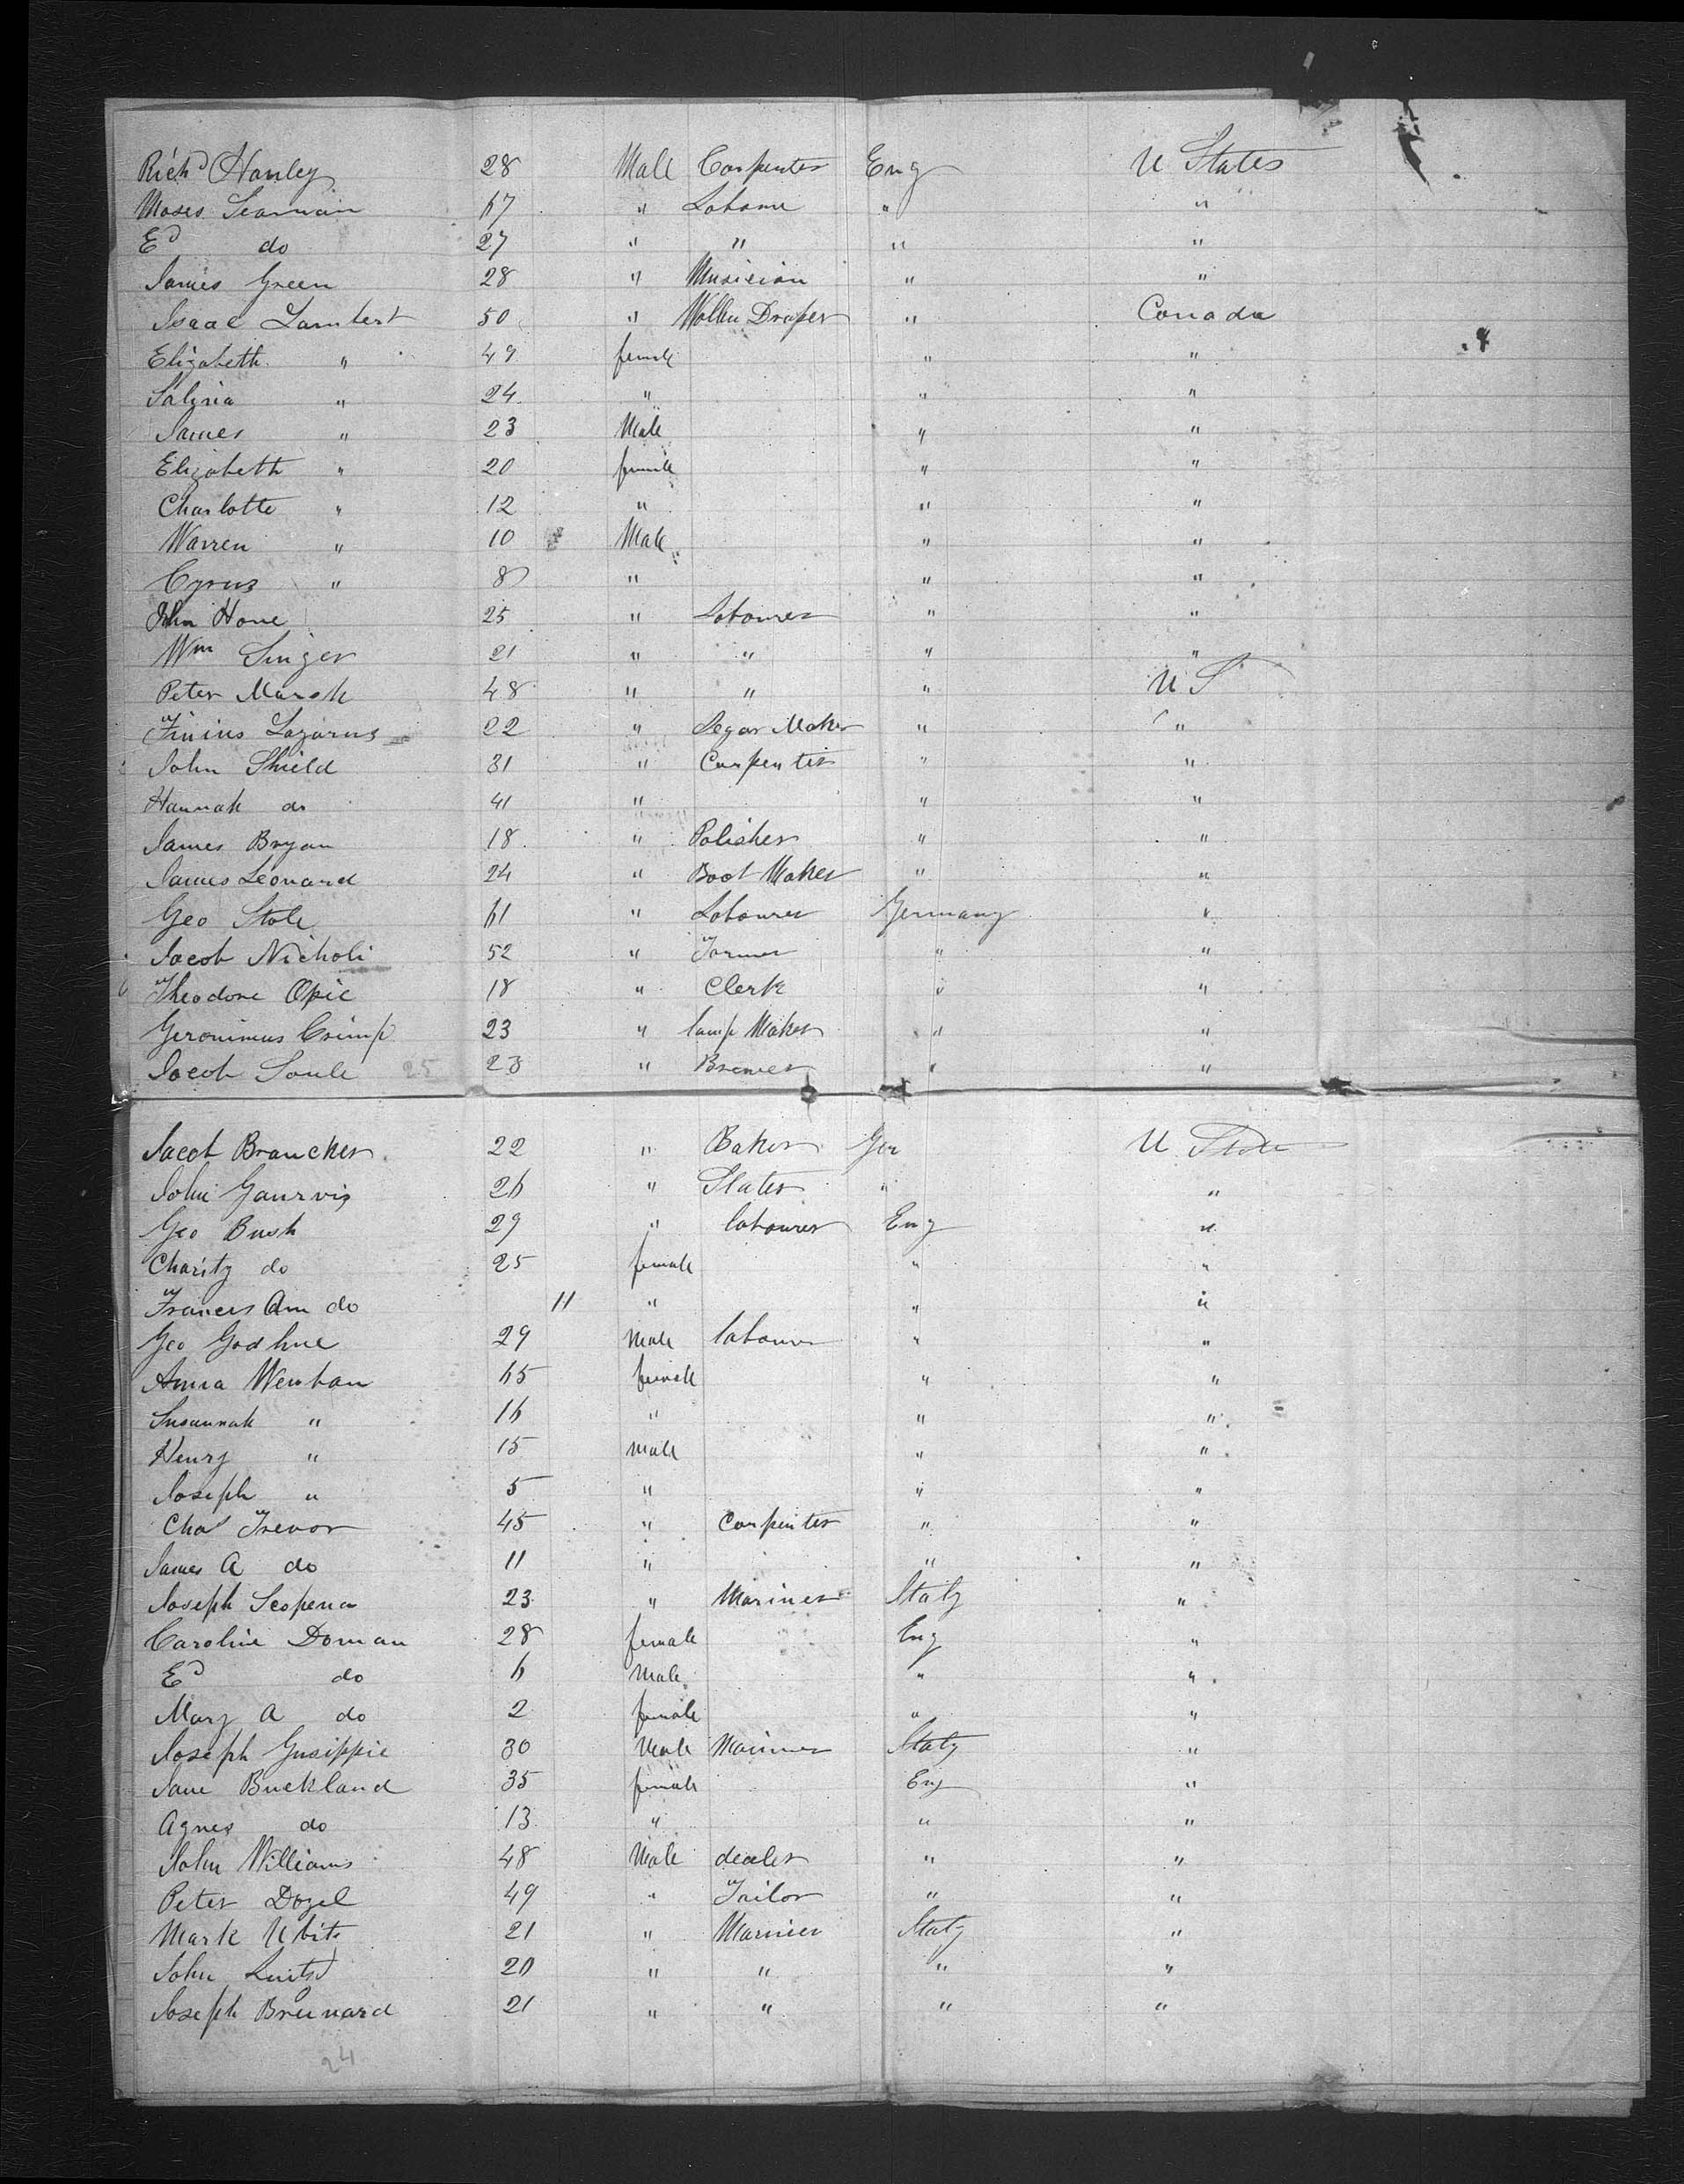 Richd Hanley 28 Male Carpenter Eng U States
Moses Seaman 67 " Laboure " "
Ed do 27 " " " "
James Green 28 " Musician " "
Isaac Lambert 50 " Wollen Draper " Canada
Elizabeth " 49 female " "
Salina " 24 " " "
James " 23 Male " "
Elizabeth " 20 female " "
Charlotte " 12 " " "
Warren " 10 Male " "
Cyrus " 8 " " "
John Hone 25 " Labourer " "
Wm Singer 21 " " " "
Peter Marsh 48 " " " U S
Lazarus 22 " Segar Maker " "
John Shield 31 " Carpenter " "
Hannah do 41 " " "
James Bryan 18 " Polisher " "
James Leonard 24 " Boot Maker " "
Geo Stole 61 " Labourer Germany "
Jacob Nicholi 52 " Farmer " "
Theodore Opic 18 " Clerk " "
Geronimus Crimp 23 " Lamp Maker " "
Jacob Soule 25 23 " Brewer " "
Jacob Brancker 22 " Baker Ger U State
John Gaurvis 26 " Slater " "
Geo Bush 29 " labourer Eng "
Charity do 25 female " "
Frances Ann do 11 " " "
Geo Godhue 29 Male labourer " "
Anna Wenban 65 female " "
Susannah " 16 " " "
Henry " 15 male " "
Joseph " 5 " " "
Chas Trevor 45 " Carpenter " "
James A do 11 " " "
Joseph Scopena 23 " Mariner Italy "
Caroline Doman 28 female Eng "
Ed do 6 Male " "
Mary A do 2 female " "
Joseph Gusippie 30 Male Mariner Italy "
Jane Buckland 35 female Eng "
Agnes do 13 " " "
John Williams 48 Male dealer " "
Peter Dozel 49 " Tailor " "
Mark Ubits 21 " Mariner Italy "
John 20 " " " "
Joseph Breunard 21 " " " "
24